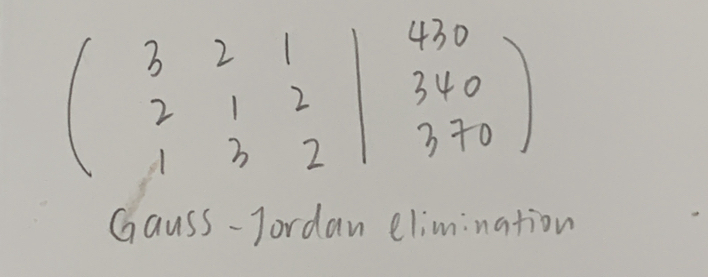 3 2 1 | 430
2 1 2 | 340
1 3 2 | 370
Gauss-Jordan elimination